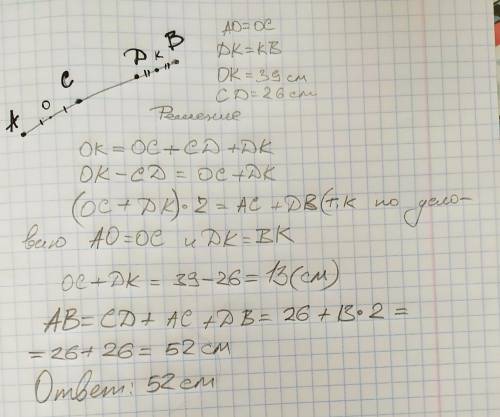 AO=OC
DK=KB
OK=39 см
CD=26см
Решение
A O C D K B
OK=OC+CD+DK
OK-CD=OC+DK
(OC+DK)•2=AC+DB(т,к по усло-
вию AO=OC и DK=BK
OC+DK=39-26=13(см)
AB=CD+AC+DB=26+13•2=
=26+26=52см
Ответ: 52см